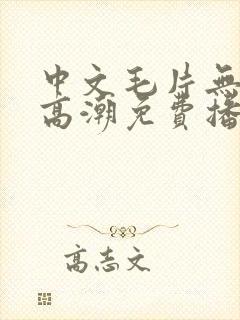 中文毛片無
高潮免費播
高志文